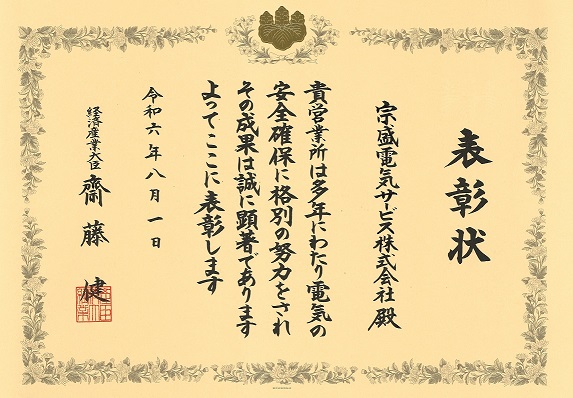 表彰状
宗盛電気サービス株式会社 殿
貴営業所は多年にわたり電気の
安全確保に格別の努力をされ
その成果は誠に顕著であります
よってここに表彰します
令和六年八月一日
経済産業大臣 齋藤 健